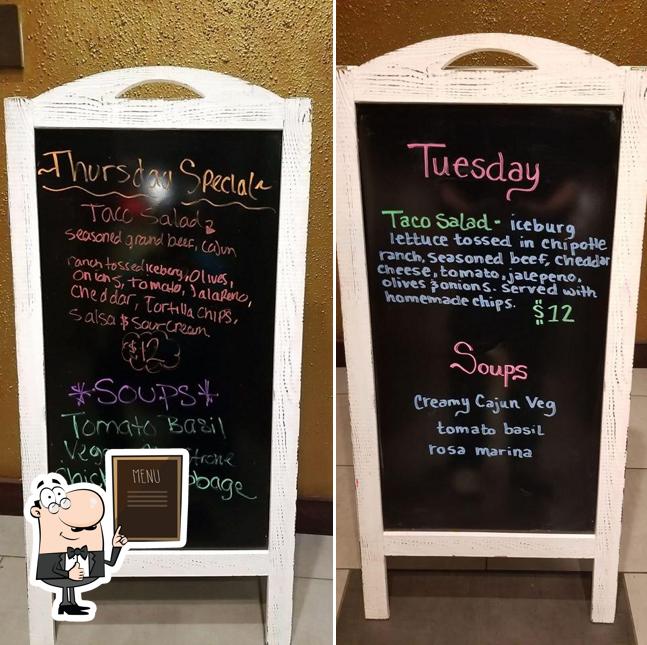 ~Thursday Special~
Taco Salad
seasoned grand beef, cajun
ranch tossed iceberg, Olives,
Onions, tomato, Jalapeno,
cheddar, Tortilla chips,
salsa $ sour cream
$12
*SOUPS*
Tomato Basil
MENU
Tuesday
Taco Salad - iceburg
lettuce tossed in chipotle
ranch, seasoned beef, cheddar
cheese, tomato, jalepeno,
olives & onions. Served with
homemade chips. $12
Soups
Creamy Cajun Veg
tomato basil
rosa marina